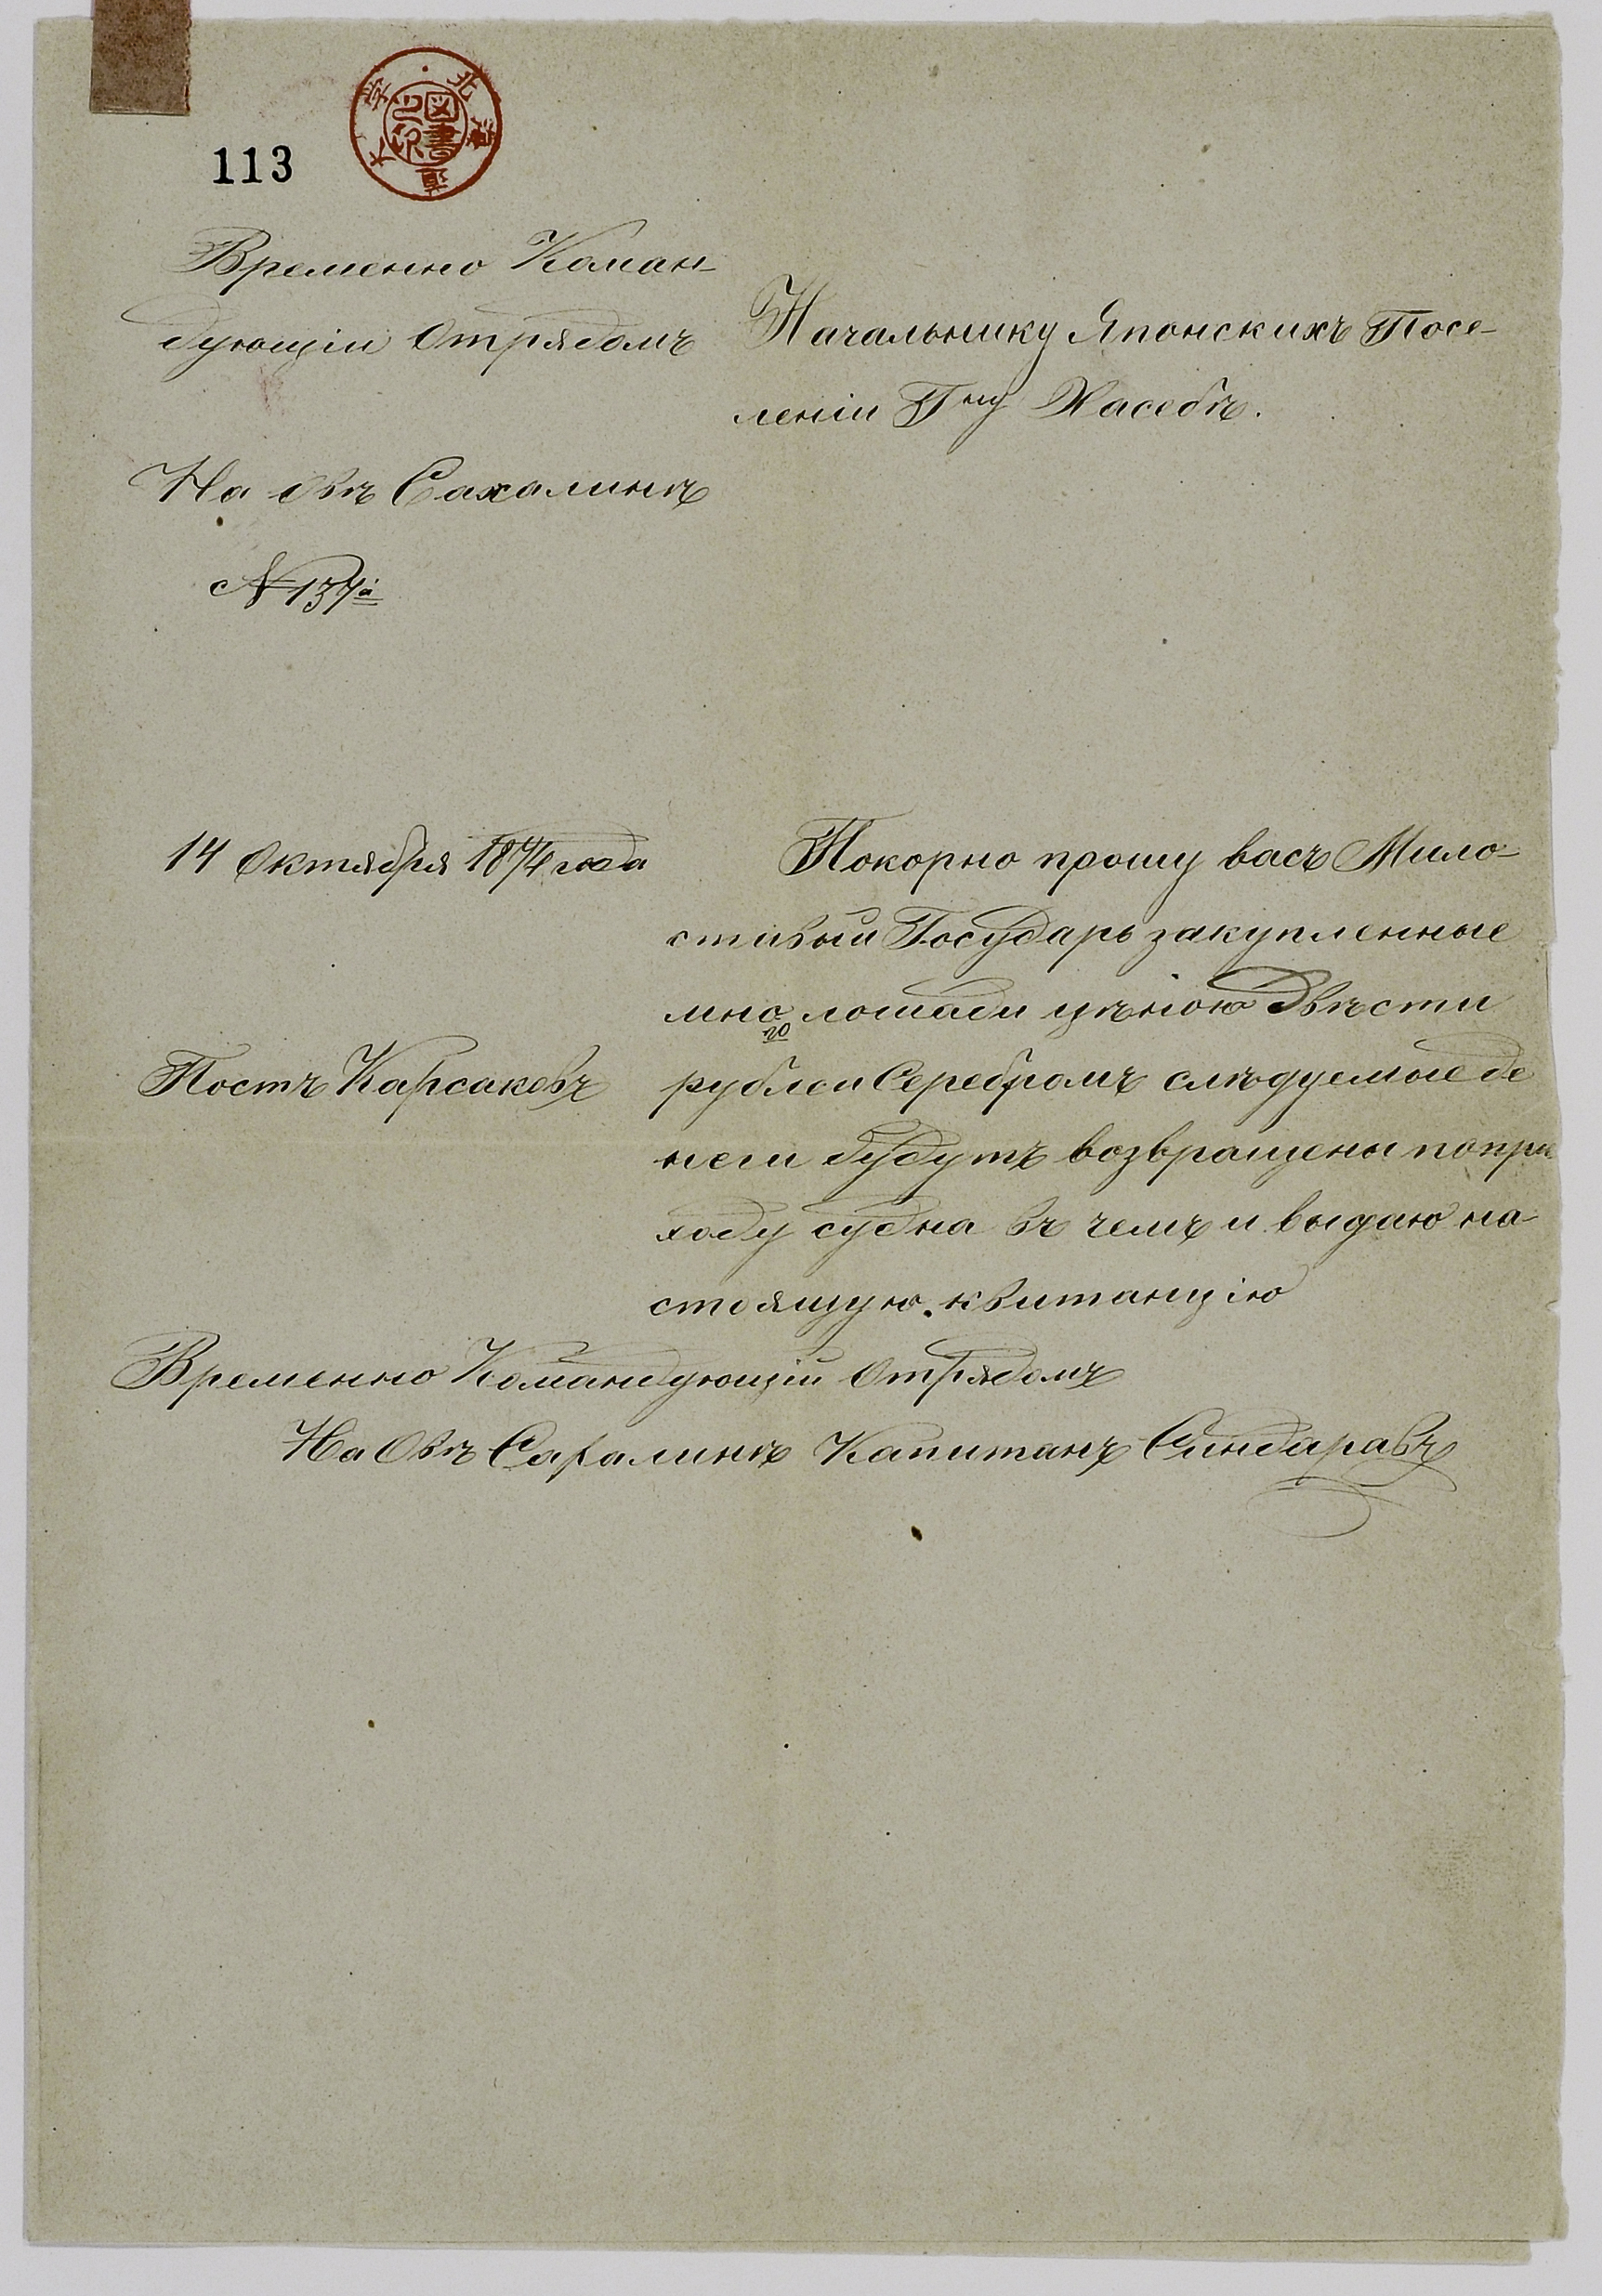 113
北海道大学
図書之印
Временно Коман-
дующiи Отрядомъ
На овѣ Сахалинѣ
№ 137й
Начальнику Японскихъ Посе-
ленiи Гну Хасебѣ.
14 Октября 1874 года
Постъ Карсаковъ
Покорно прошу васъ Мило-
стивый Государь закупленные
мно лошади цѣною Двѣсти
го
рублеи Серебромъ слѣдуемые де
неги будутъ возвращены попри
ходу судна въ чемъ и выдаю на-
стоящую. квитанцiю
Временно Командующiй Отрядомъ
На Овѣ Сахалинѣ Капитанъ